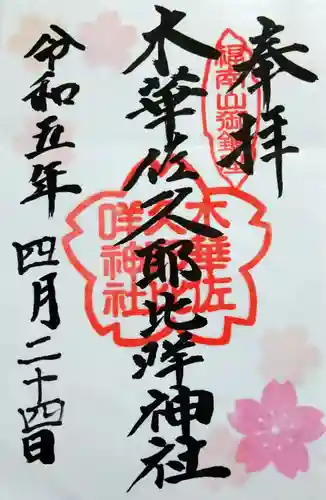 奉拝
木華佐久耶比咩神社
令和五年四月二十四日
木華佐
久耶比
咩神社